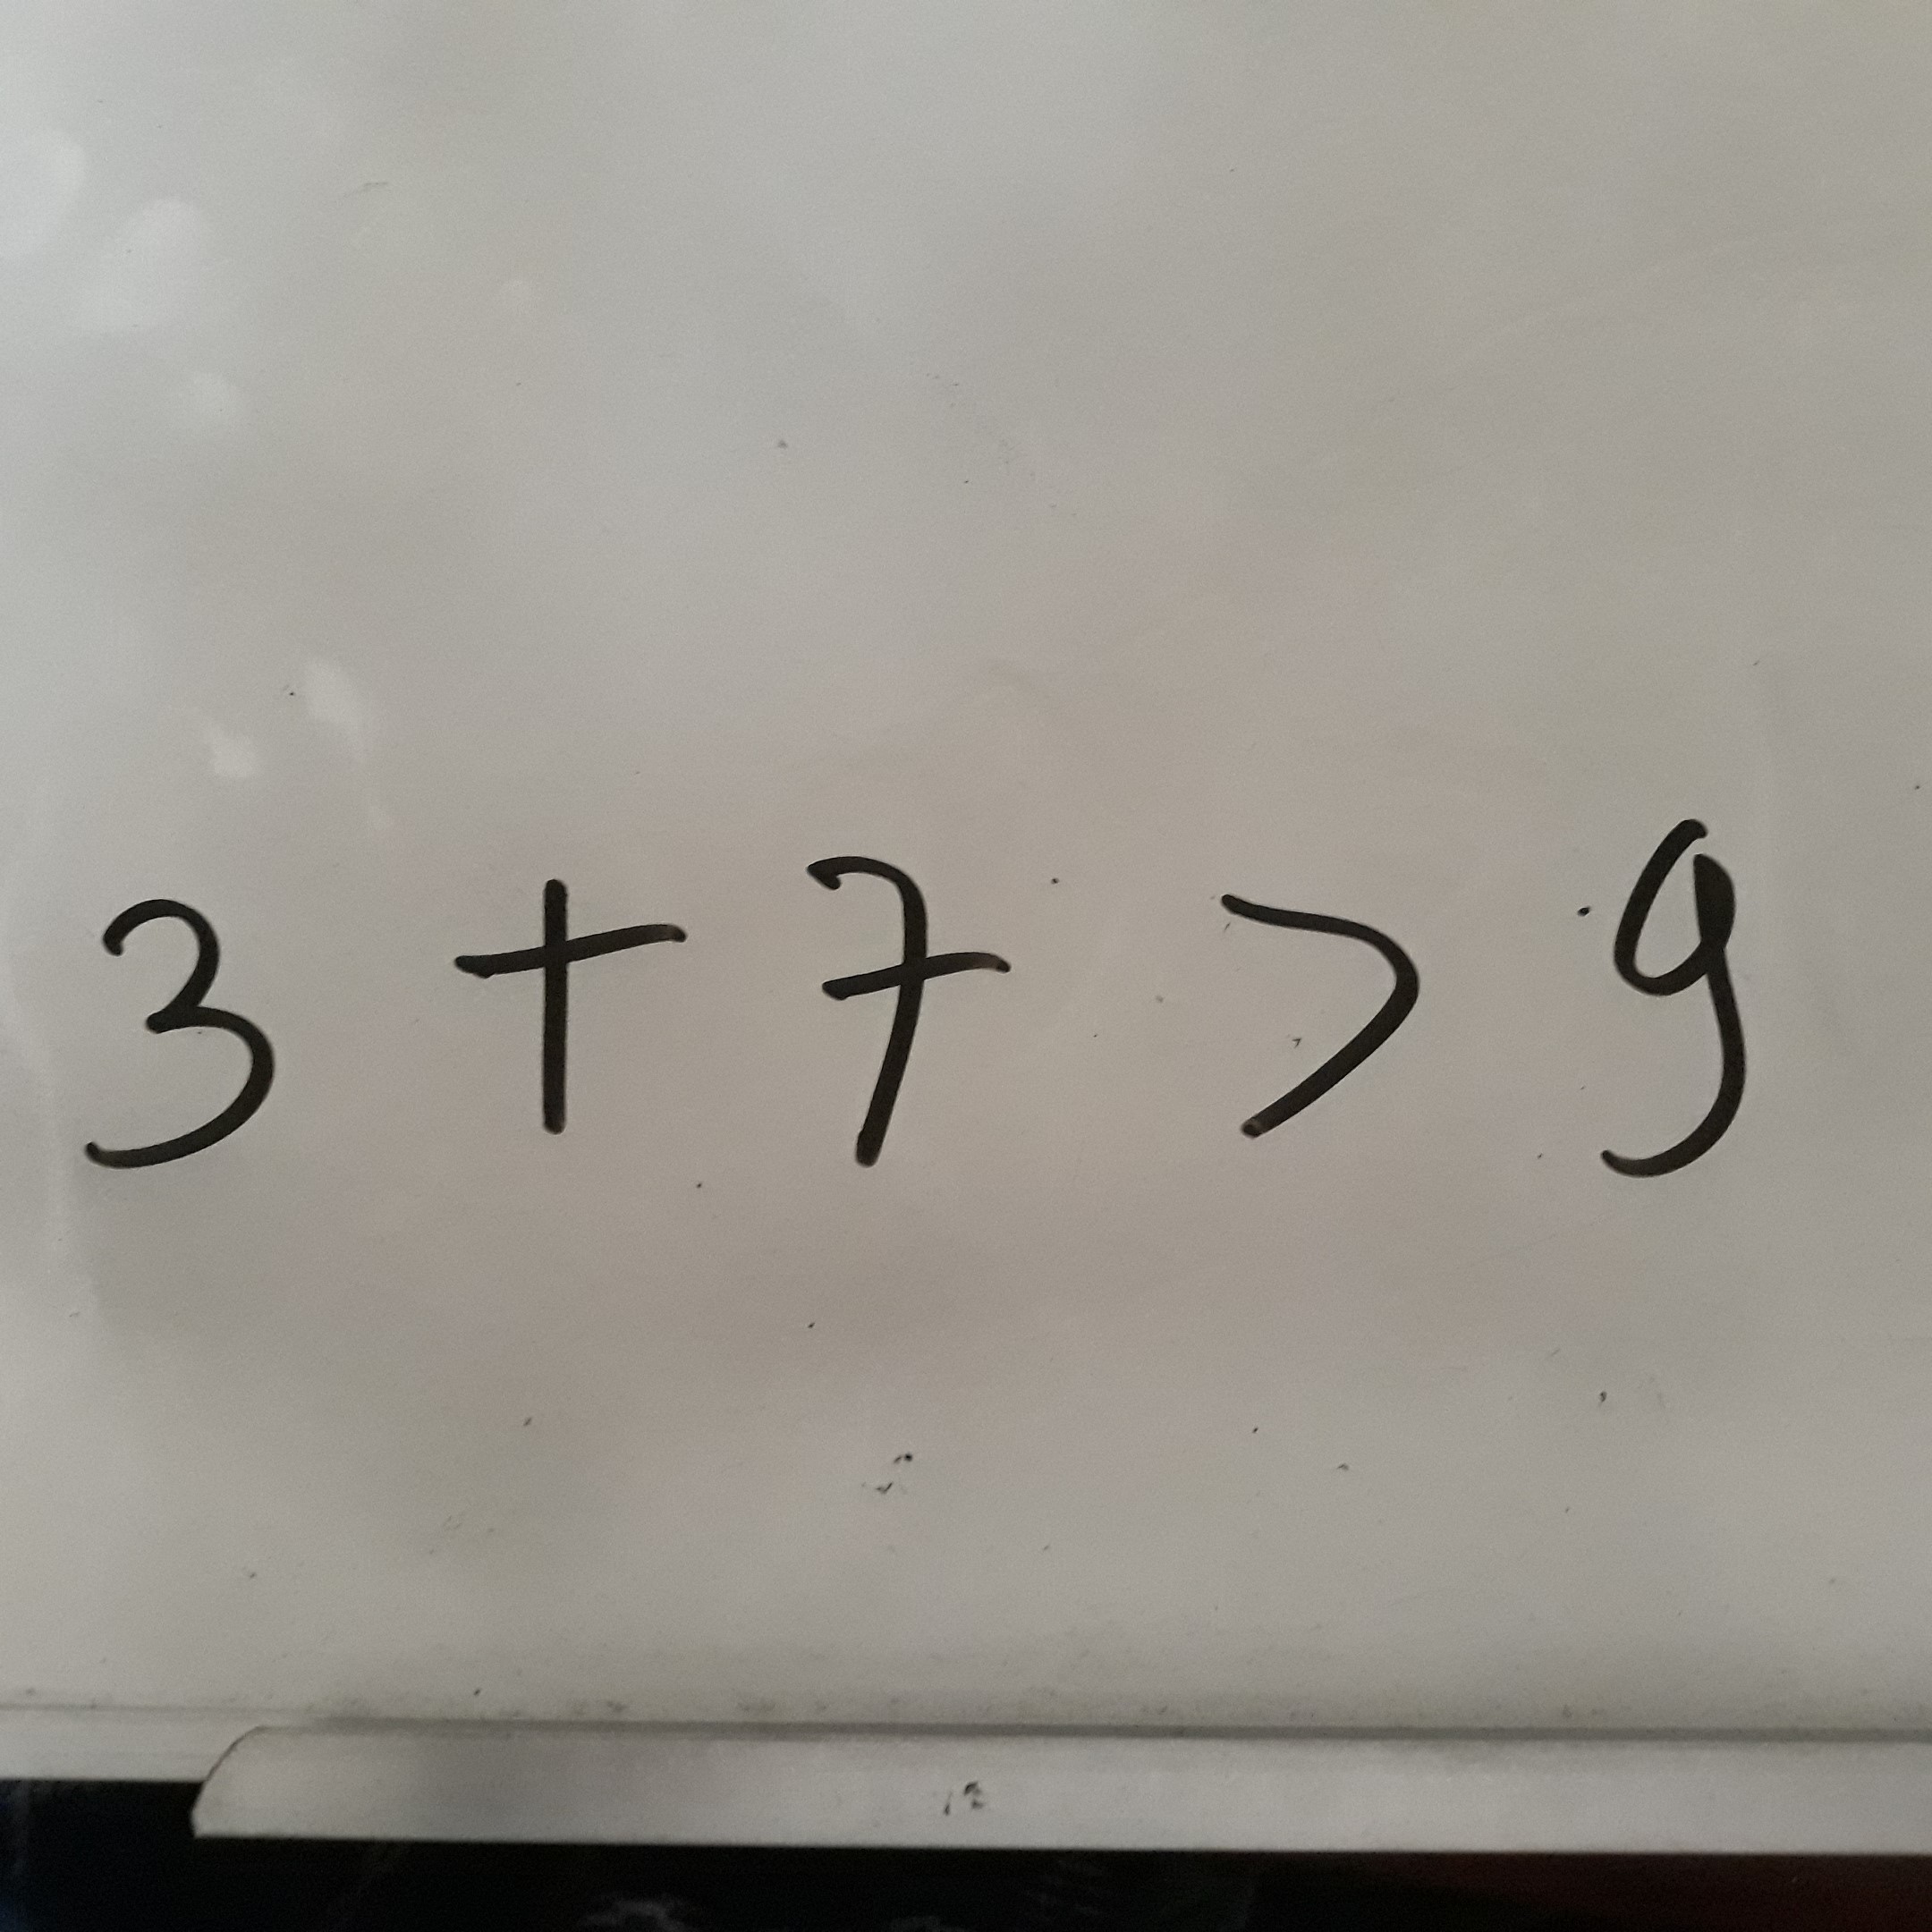 3 + 7 > 9